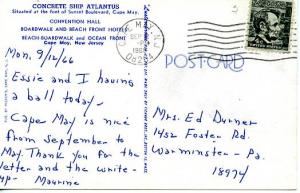 CONCRETE SHIP ATLANTUS
Situated at the foot of Sunset Boulevard, Cape May.
CONVENTION HALL
BOARDWALK AND BEACH FRONT HOTELS
BEACH BOARDWALK AND OCEAN FRONT
Cape May, New Jersey
Mon, 9/12/66
Essie and I having
a ball today-
Cape May is nice
from September to
May. Thank you for the
letter and the write-
up- Maurine
CAPE MAY, N.J.
SEP
POSTCARD
Mrs. Ed Durner
1452 Foster Rd.
Warminster - Pa.
18974